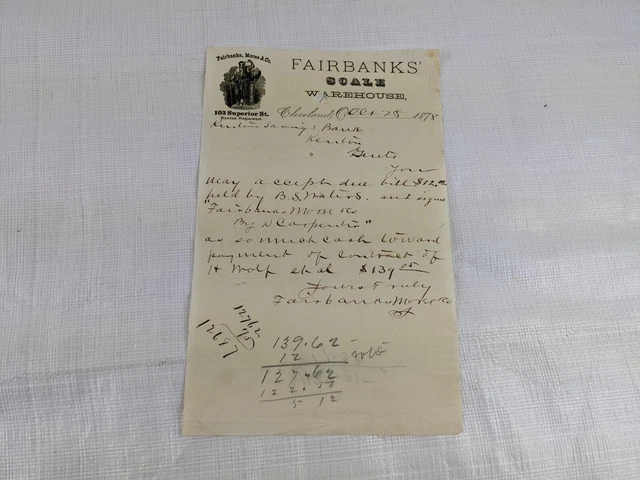 Fairbanks, Morse & Co.
FAIRBANKS'
SCALE
WAREHOUSE,
103 Superior St.
Scales Repaired.
Cleveland, Oct 25 1878
Kenton Savings Bank
Kenton
Gents
You
may accept due bill $12.00
held by B.S. Waters. and signed
"Fairbanks Morse & Co
By D Carpenter"
as so much cash toward
payment of Contract of
H Wolf et al $139
Yours Truly
Fairbanks Morse & Co
12762
12687
139.62
12
127.62
5 12